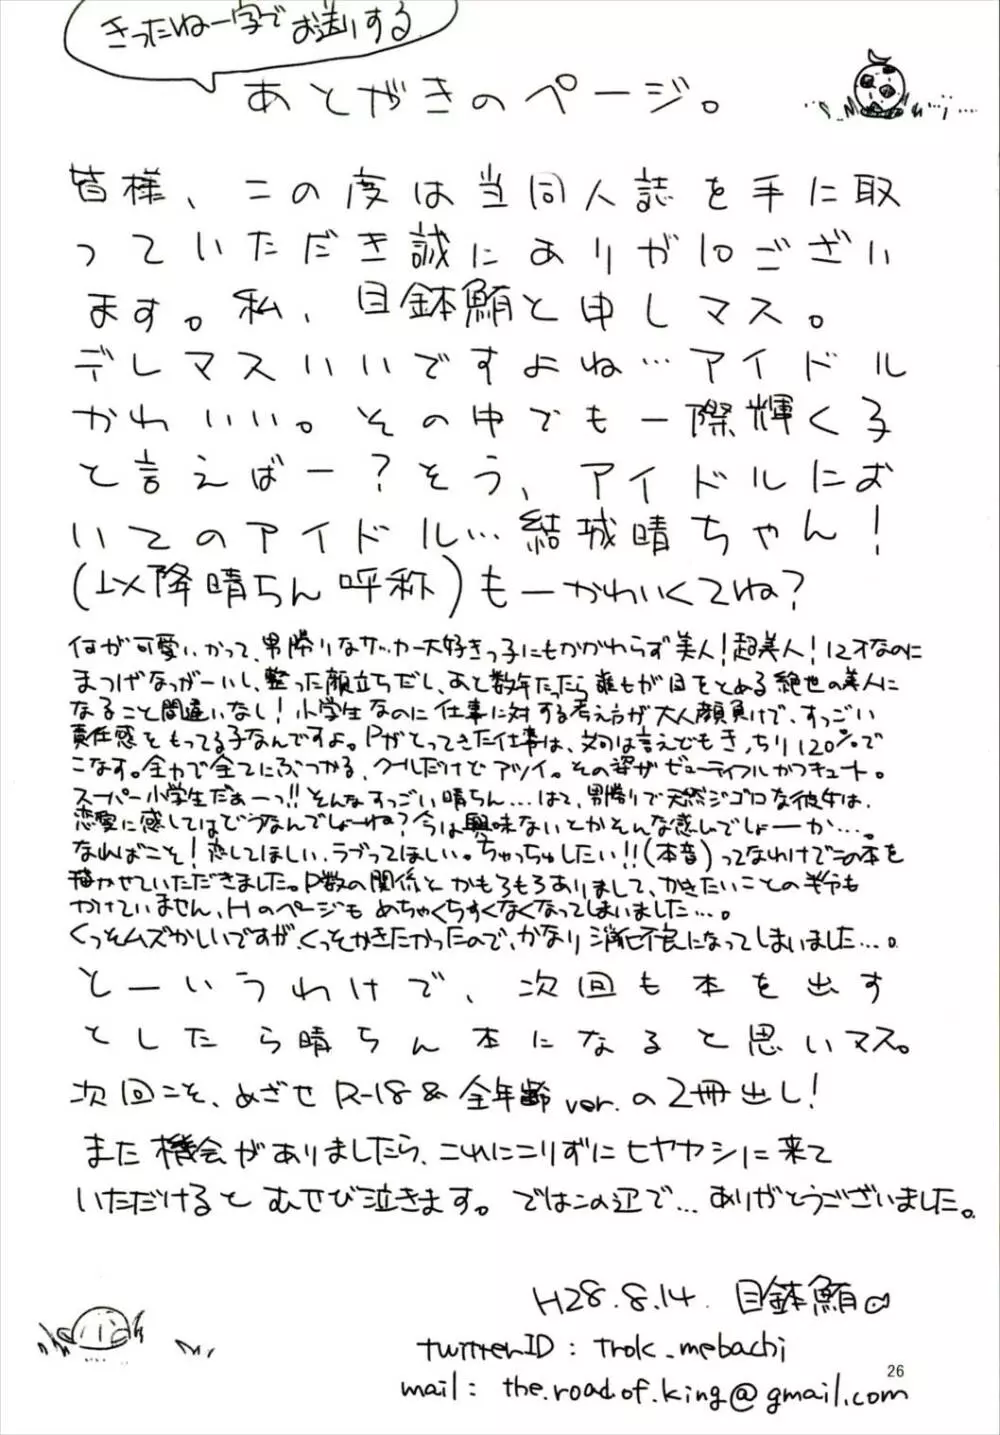 きったねー字でお送りする
あとがきのページ。
皆様、この度は当同人誌を手に取
っていただき誠にありがとうござい
ます。私、目鉢鮪と申しマス。
デレマスいいですよね…アイドル
かわいい。その中でも一際輝く子
と言えばー?そう、アイドルにお
いてのアイドル…結城晴ちゃん!
(以降晴ちん呼称)もーかわいくてね?
何が可愛いかって、男勝りなサッカー大好きっ子にもかかわらず美人!超美人!12才なのに
まつげなっがーいし、整った顔立ちだし、あと数年たったら誰もが目をとめる絶世の美人に
なること間違いなし!小学生なのに仕事に対する考え方が大人顔負けで、すっごい
責任感をもってる子なんですよ。Pがとってきた仕事は、文句は言えどもきっちり120%で
こなす。全力で全てにぶつかる、クールだけどアツイ。その姿ザビューティフルかつキュート。
スーパー小学生だぁーっ!!そんなすっごい晴ちん…はて、男勝りで天然ジゴロな彼女は、
恋愛に感してはどうなんでしょーね?今は興味ないとかそんな感じでしょーか…。
なればこそ!恋してほしい、ラブってほしい。ちゅっちゅしたい!!(本音)ってなわけでこの本を
描かせていただきました。P数の関係とかもろもろありまして、かきたいことの半分も
かけていません、Hのページもめちゃくちゃすくなくなってしまいました…。
くっそムズかしいですが、くっそかきたかったので、かなり消化不良になってしまいました…。
とーいうわけで、次回も本を出す
としたら晴ちん本になると思いマス。
次回こそ、めざせR-18&全年齢ver.の2冊出し!
また機会がありましたら、これにこりずにヒヤカシに来て
いただけるとむせび泣きます。ではこの辺で…ありがとうございました。
H28.8.14. 目鉢鮪
twitterID : Trok_mebachi
mail : the.road.of.king@gmail.com
26